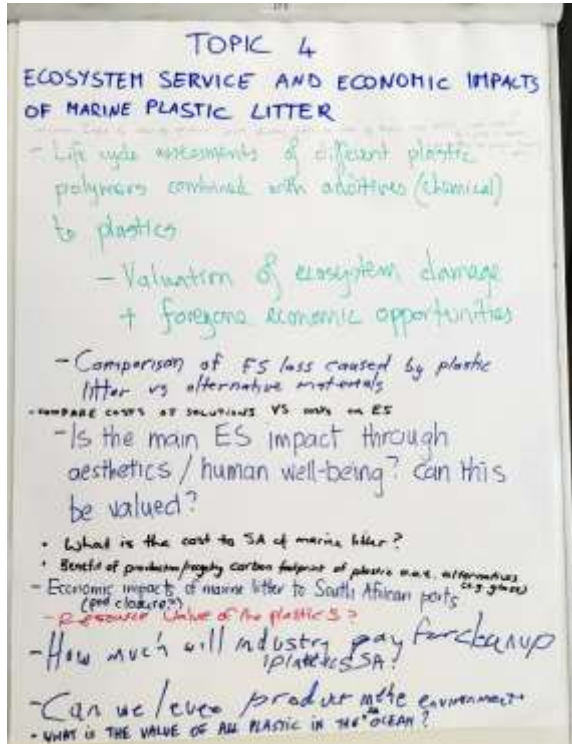 TOPIC 4
ECOSYSTEM SERVICE AND ECONOMIC IMPACTS
OF MARINE PLASTIC LITTER
- Life cycle assesments of different plastic
polymers combined with additives (chemical)
to plastics
- Valuation of ecosystem damage
+ foregone economic opportunities
- Comparison of ES loss caused by plastic
litter vs alternative materials
- COMPARE COSTS OF SOLUTIONS VS costs on ES
- Is the main ES impact through
aesthetics / human well-being? Can this
be valued?
• What is the cost to SA of marine litter?
• Benefit of carbon footprint of plastic alternatives
(e.g. glass)
- Economic impacts of marine litter to South African ports
(port closure?)
- Resource Value of the plastics?
- How much will industry pay for cleanup
SA?
- Can we the environment
- WHAT IS THE VALUE OF ALL PLASTIC IN THE OCEAN?